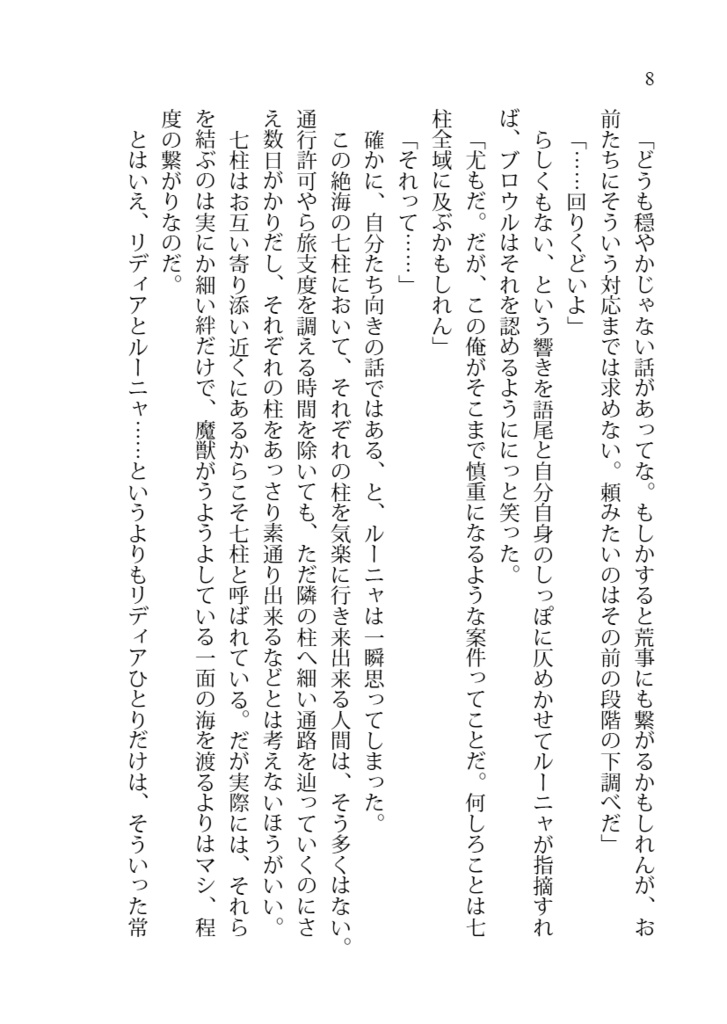 8
「どうも穏やかじゃない話があってな。もしかすると荒事にも繋がるかもしれんが、お
前たちにそういう対応までは求めない。頼みたいのはその前の段階の下調べだ」
「……回りくどいよ」
らしくもない、という響きを語尾と自分自身のしっぽに仄めかせてルーニャが指摘すれ
ば、ブロウルはそれを認めるようににっと笑った。
「尤もだ。だが、この俺がそこまで慎重になるような案件ってことだ。何しろことは七
柱全域に及ぶかもしれん」
「それって……」
確かに、自分たち向きの話ではある、と、ルーニャは一瞬思ってしまった。
この絶海の七柱において、それぞれの柱を気楽に行き来出来る人間は、そう多くはない。
通行許可やら旅支度を調える時間を除いても、ただ隣の柱へ細い通路を辿っていくのにさ
え数日がかりだし、それぞれの柱をあっさり素通り出来るなどとは考えないほうがいい。
七柱はお互い寄り添い近くにあるからこそ七柱と呼ばれている。だが実際には、それら
を結ぶのは実にか細い絆だけで、魔獣がうようよしている一面の海を渡るよりはマシ、程
度の繋がりなのだ。
とはいえ、リディアとルーニャ……というよりもリディアひとりだけは、そういった常